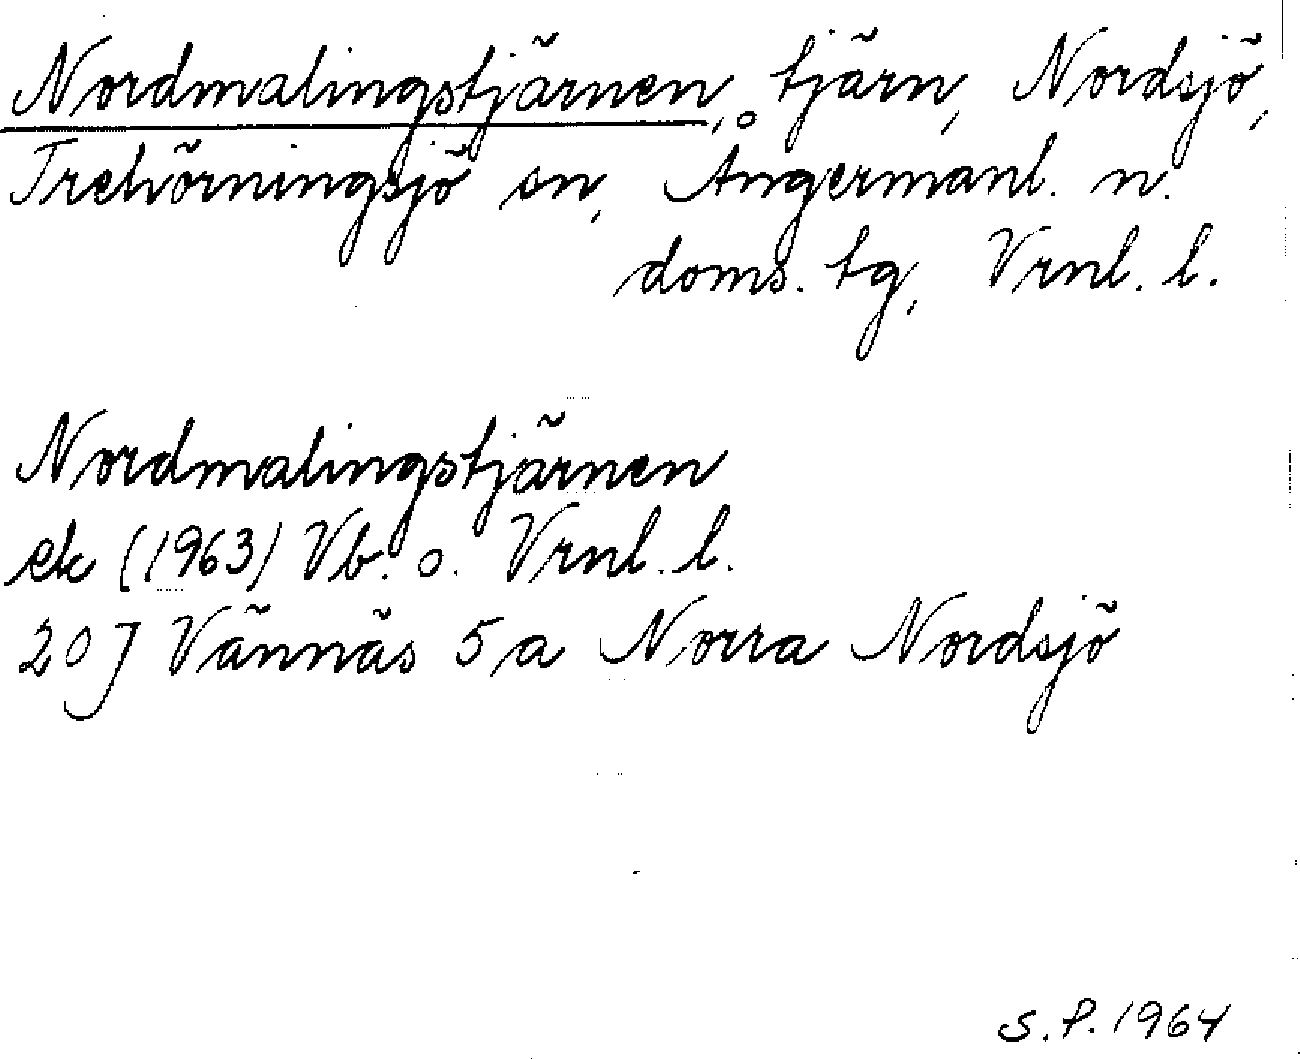 Nordmalingstjärnen, tjärn, Nordsjö,
Trehörningsjö sn, Ångermanl. n.
doms. tg, Vrnl. l.
Nordmalingstjärnen
ek (1963) Vb. o. Vrnl. l.
20 J Vännäs 5 a Norra Nordsjö
S.P. 1964